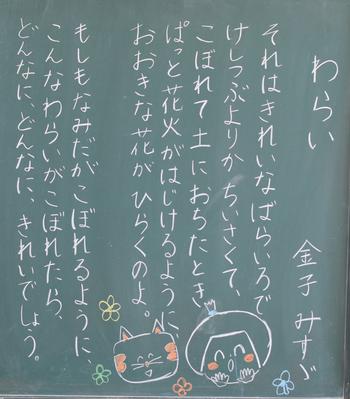 わらい
金子 みすゞ
それはきれいなばらいろで
けしつぶよりかちいさくて、
こぼれて土におちたとき
ぱっと花火がはじけるように、
おおきな花がひらくのよ。
もしもなみだがこぼれるように、
こんなわらいがこぼれたら、
どんなに、どんなに、きれいでしょう。